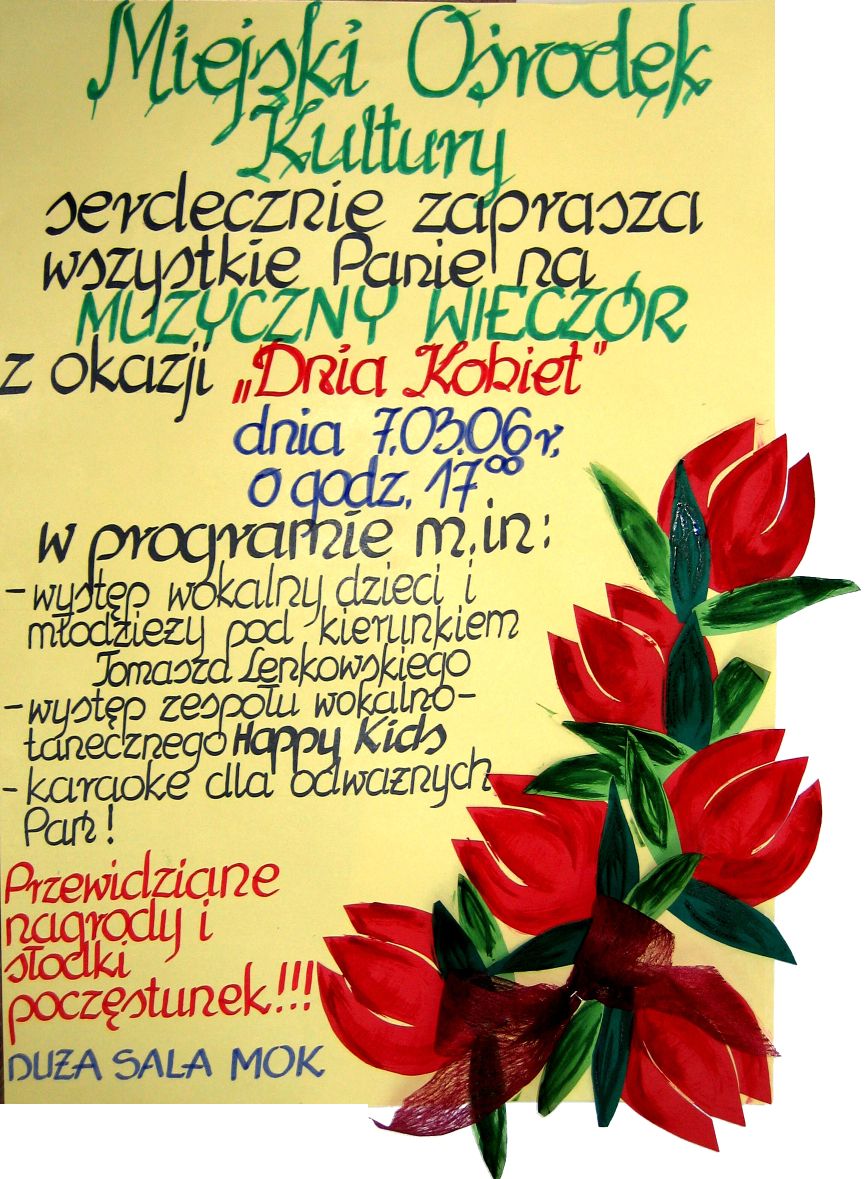 Miejski Ośrodek
Kultury
serdecznie zaprasza
wszystkie Panie na
MUZYCZNY WIECZÓR
z okazji „Dnia Kobiet"
dnia 7.03.06r.
o godz. 17⁰⁰
w programie m.in:
- występ wokalny dzieci i
młodzieży pod kierunkiem
Tomasza Lenkowskiego
- występ zespołu wokalno-
tanecznego Happy Kids
- karaoke dla odważnych
Pań!
Przewidziane
nagrody i
słodki
poczęstunek!!!
DUŻA SALA MOK